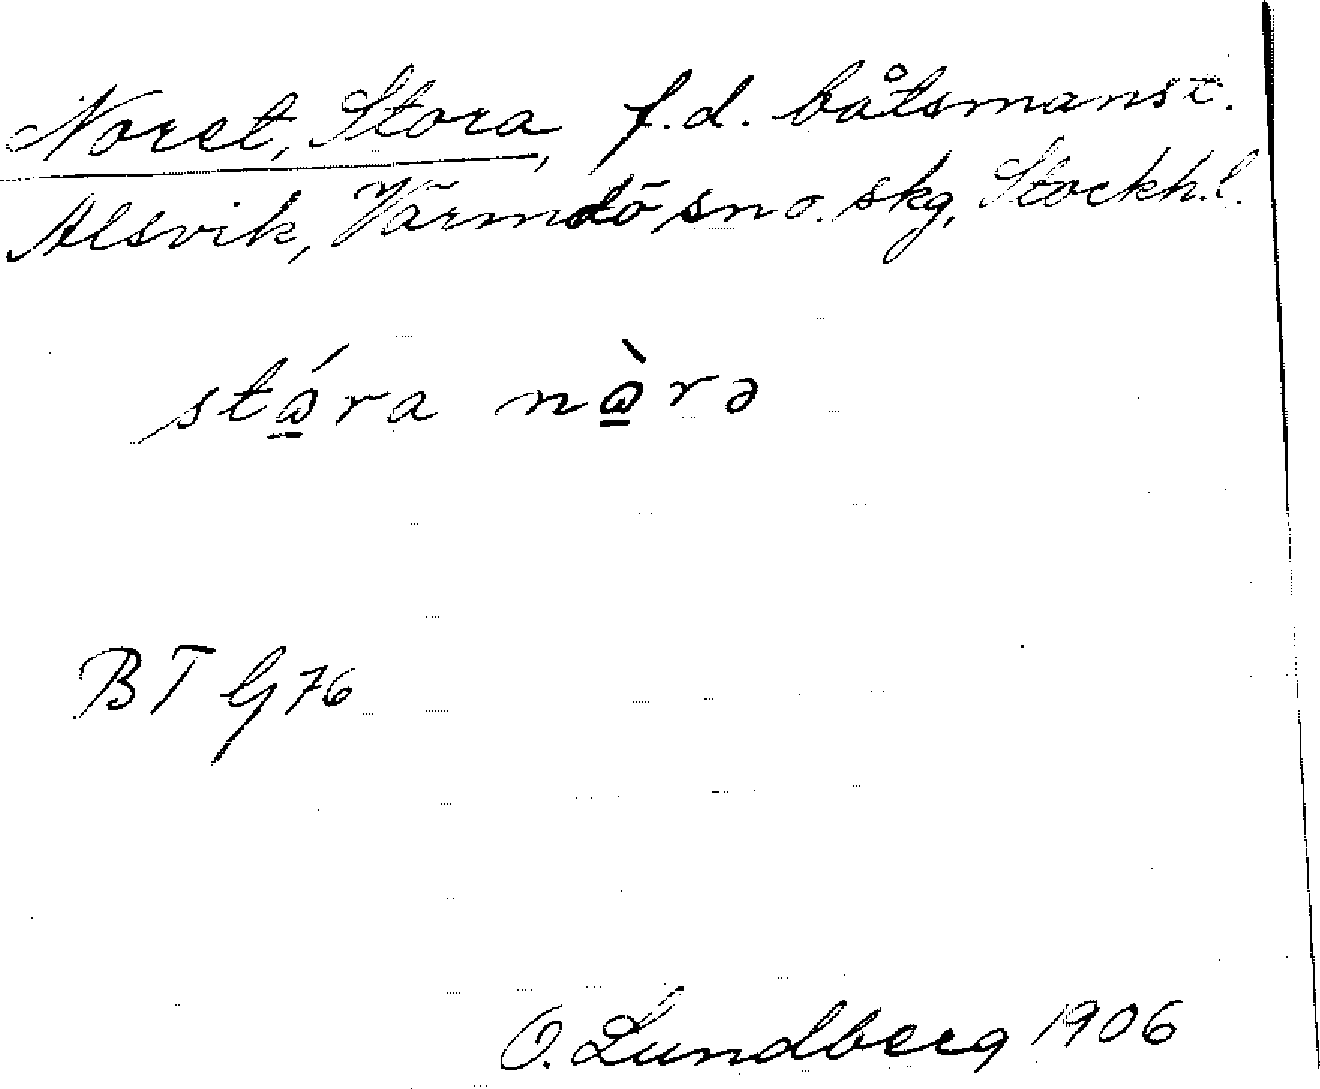 Noret, Stora, f.d. båtsmanst.
Alsvik, Värmdö sn o. skg, Stockh. l.
stɷ̱́ra nɷ̱̀rə
BT G 76
O. Lundberg 1906